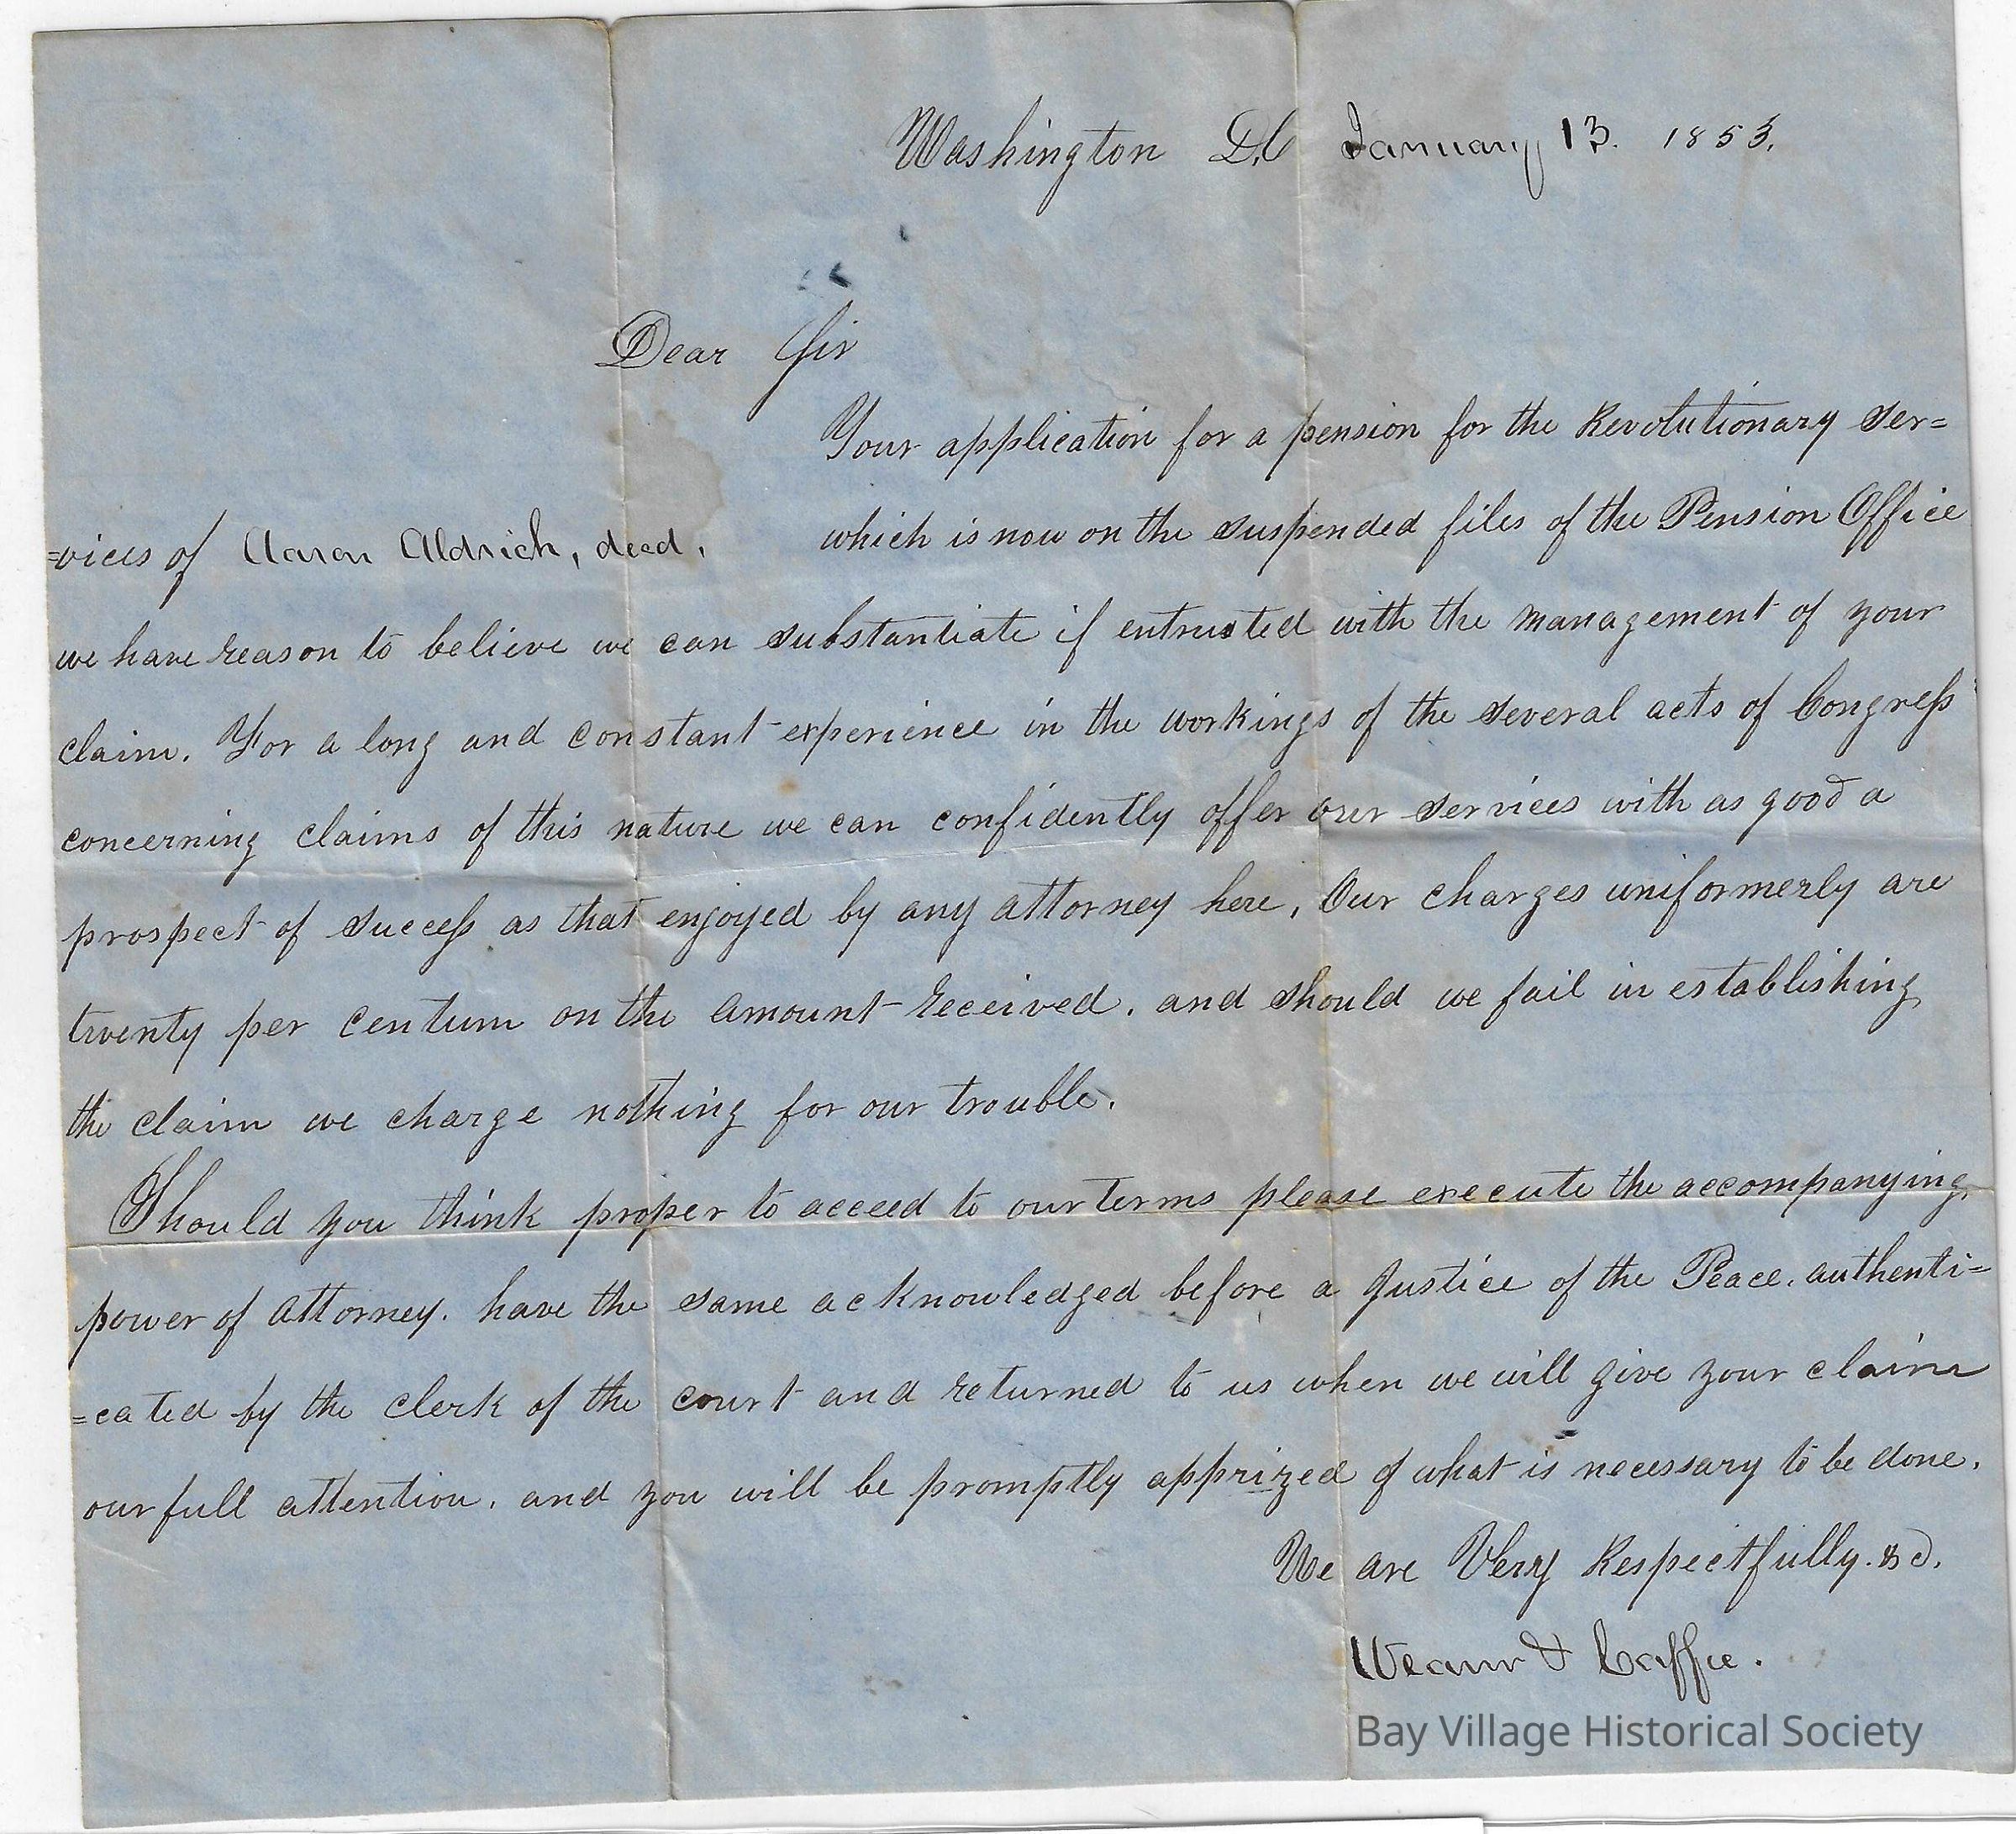 Washington D.C January 13. 1853.
Dear Sir
Your application for a pension for the Revolutionary Ser=
=vices of Aaron Aldrich, decd, which is now on the suspended files of the Pension Office
we have reason to believe we can substantiate if entrusted with the management of your
claim. For a long and constant experience in the workings of the several acts of Congress
concerning claims of this nature we can confidently offer our services with as good a
prospect of success as that enjoyed by any attorney here, Our charges uniformerly are
twenty per centum on the amount received. and should we fail in establishing
the claim we charge nothing for our trouble.
Should you think proper to acceed to our terms please execute the accompanying
power of attorney. have the same acknowledged before a Justice of the Peace. authenti=
=cated by the clerk of the court and returned to us when we will give your claim
our full attention. and you will be promptly apprized of what is necessary to be done.
We are Very Respectfully. &c.
&
Bay Village Historical Society